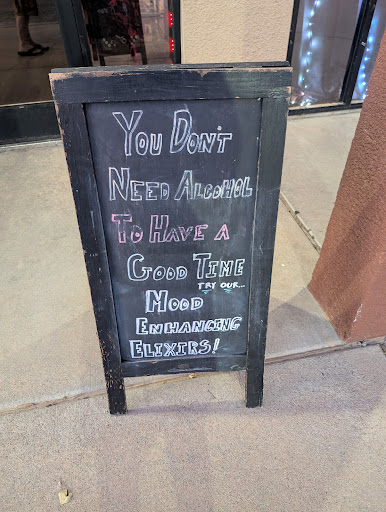 You Don't
Need Alcohol
To Have a
Good Time
TRY OUR...
Mood
Enhancing
Elixirs!